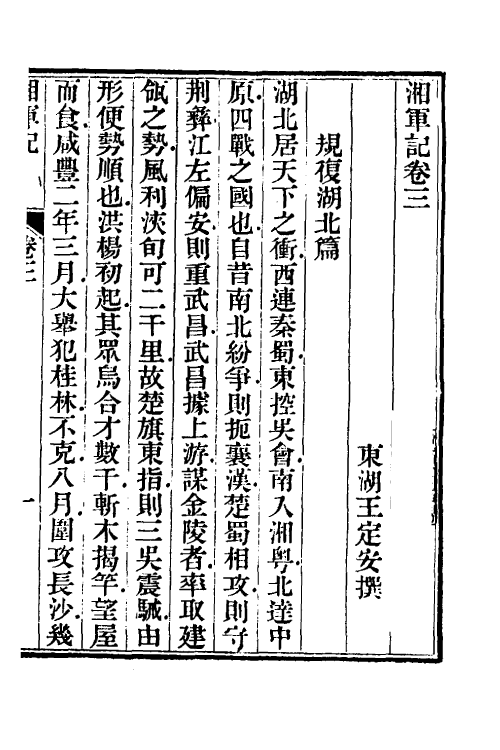 湘軍記卷三
東湖王定安撰
規復湖北篇
湖北居天下之衝西連秦蜀東控吳會南入湘粵北達中
原四戰之國也自昔南北紛爭則扼襄漢楚蜀相攻則守
荆彝江左偏安則重武昌武昌據上游謀金陵者率取建
瓴之勢風利浹旬可二千里故楚旗東指則三吳震駴由
形便勢順也洪楊初起其眾烏合才數千斬木揭竿望屋
而食咸豐二年三月大舉犯桂林不克八月圍攻長沙幾
湘軍記
卷三
一